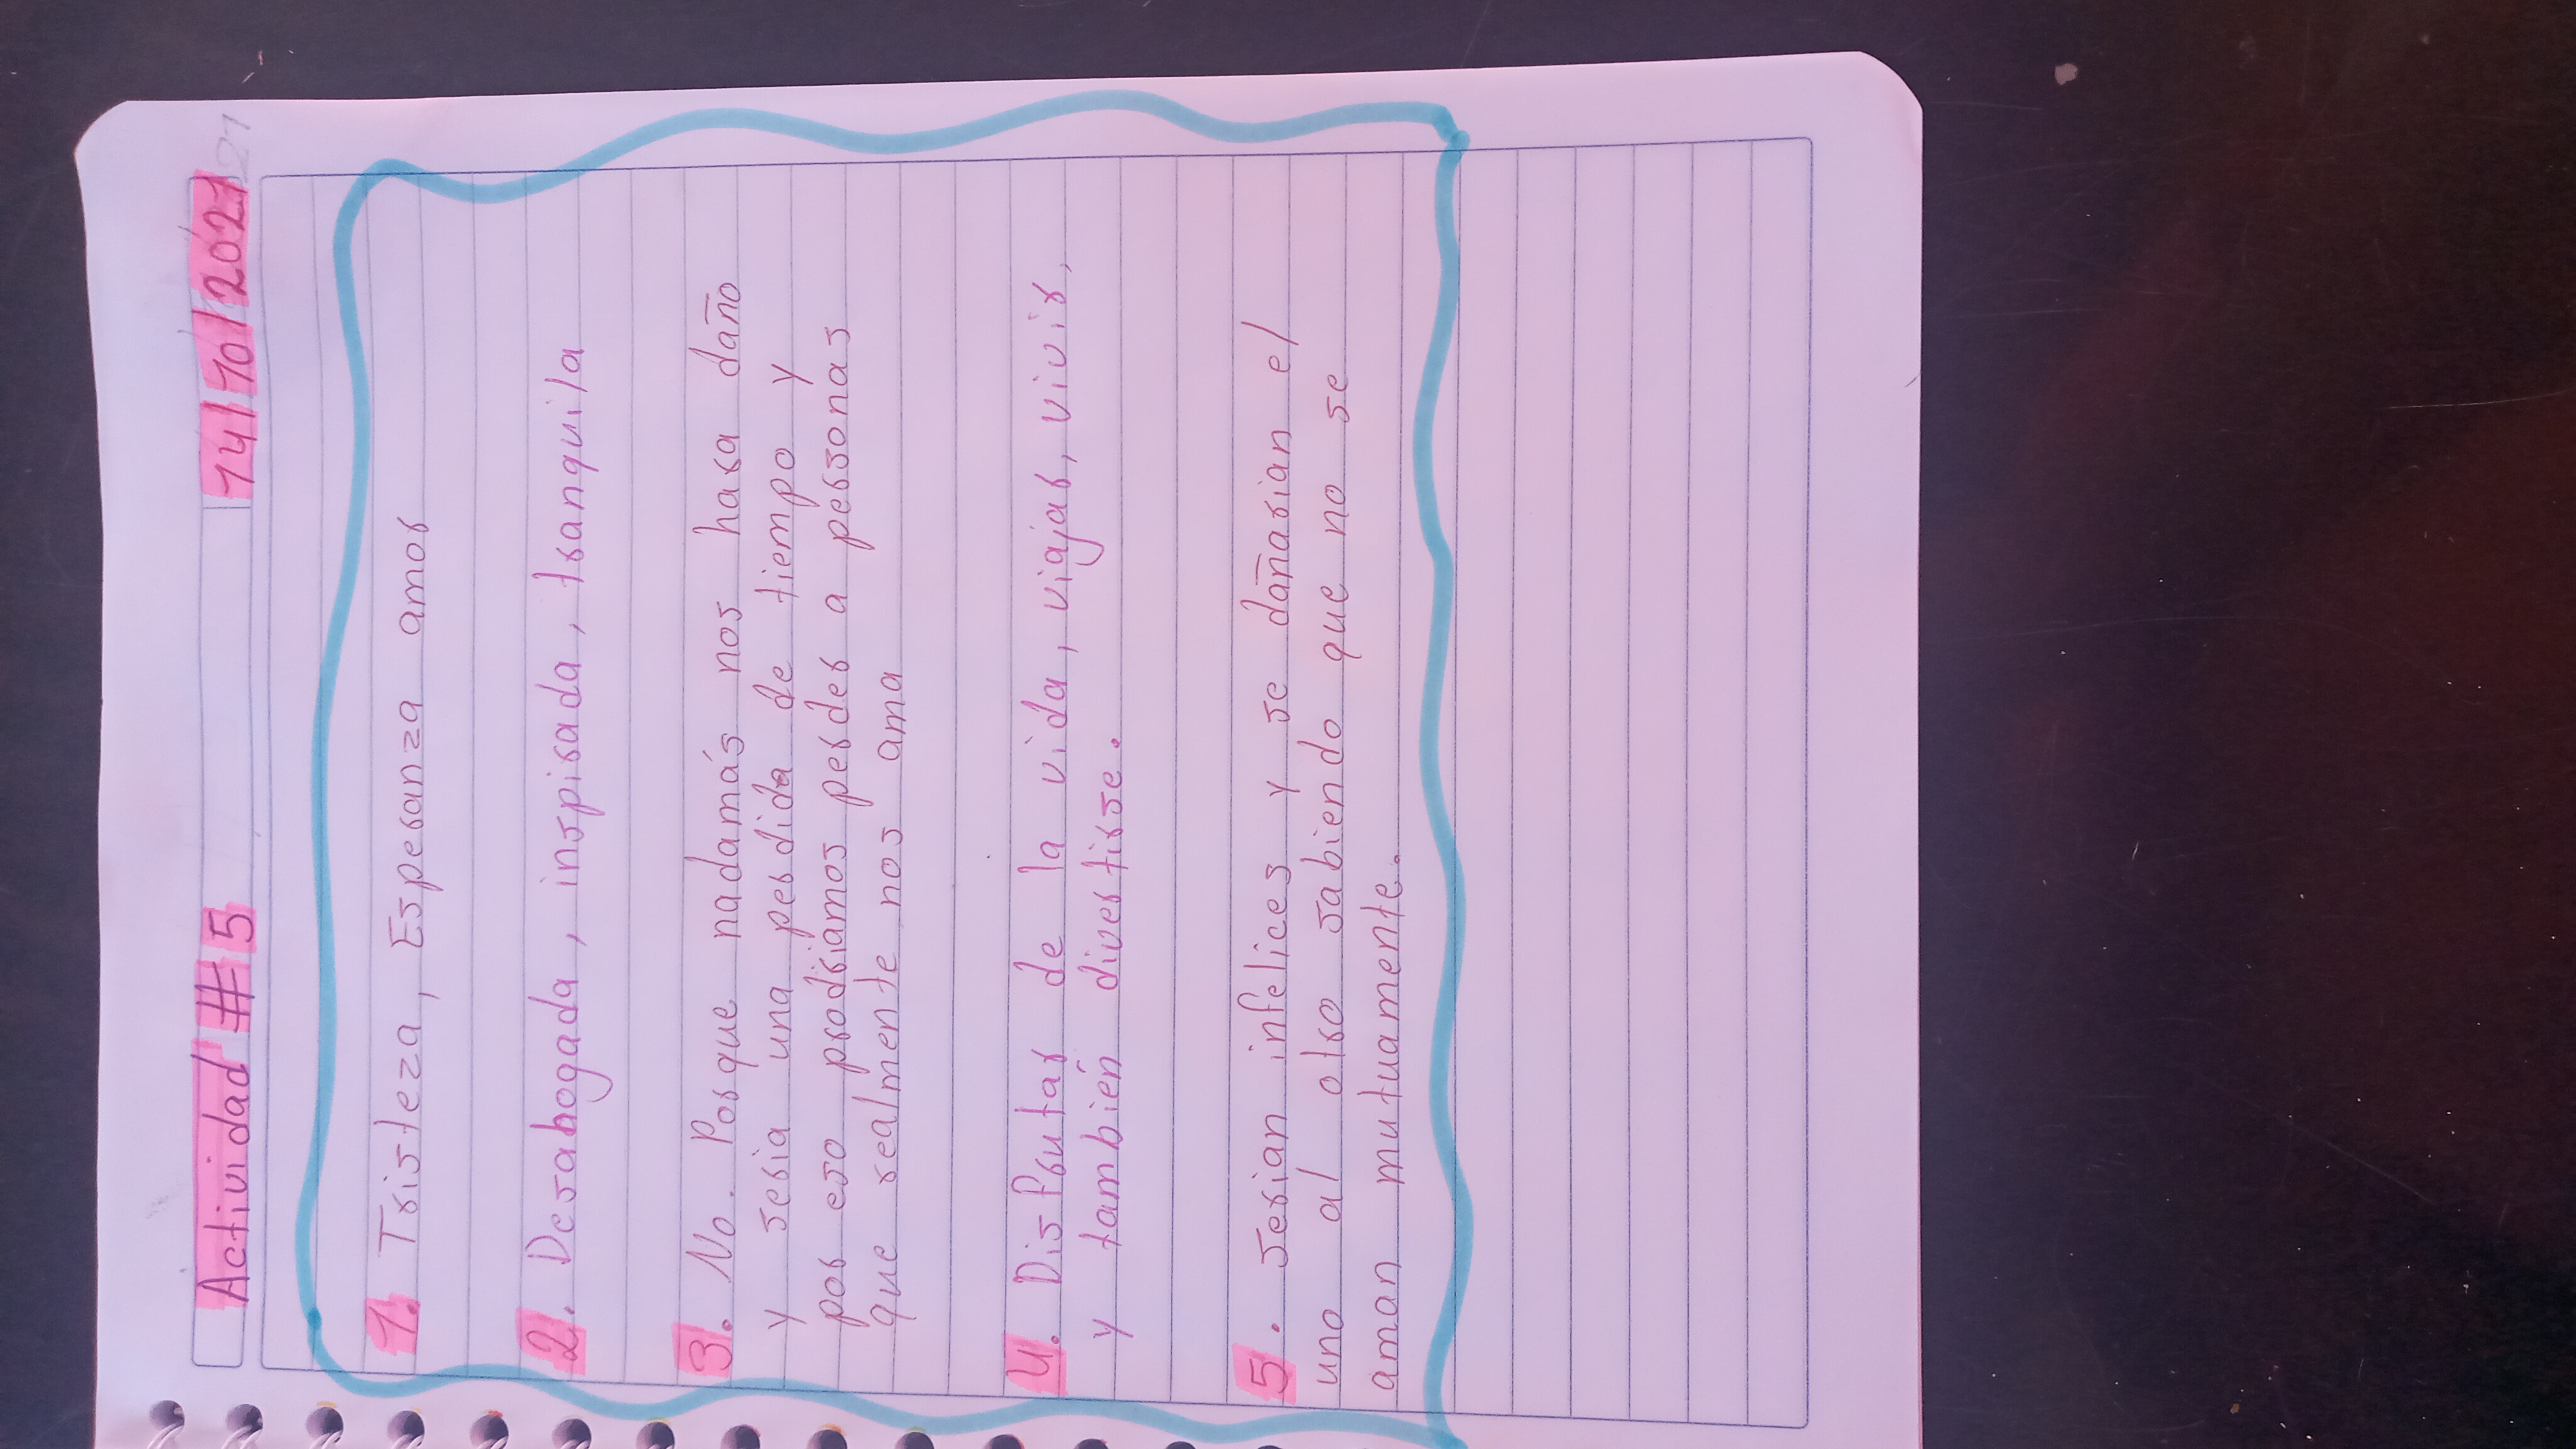 Actividad #5
14/10/2021
1. Tristeza, Esperanza amor
2. Desahogada, inspirada, tranquila
3. No. Porque nadamás nos hara daño
y seria una perdida de tiempo y
por eso prodriamos perder a personas
que realmente nos ama
4. Disfrutar de la vida, viajar, vivir,
y también divertirse.
5. serian infelices y se dañarian el
uno al otro sabiendo que no se
aman mutuamente.